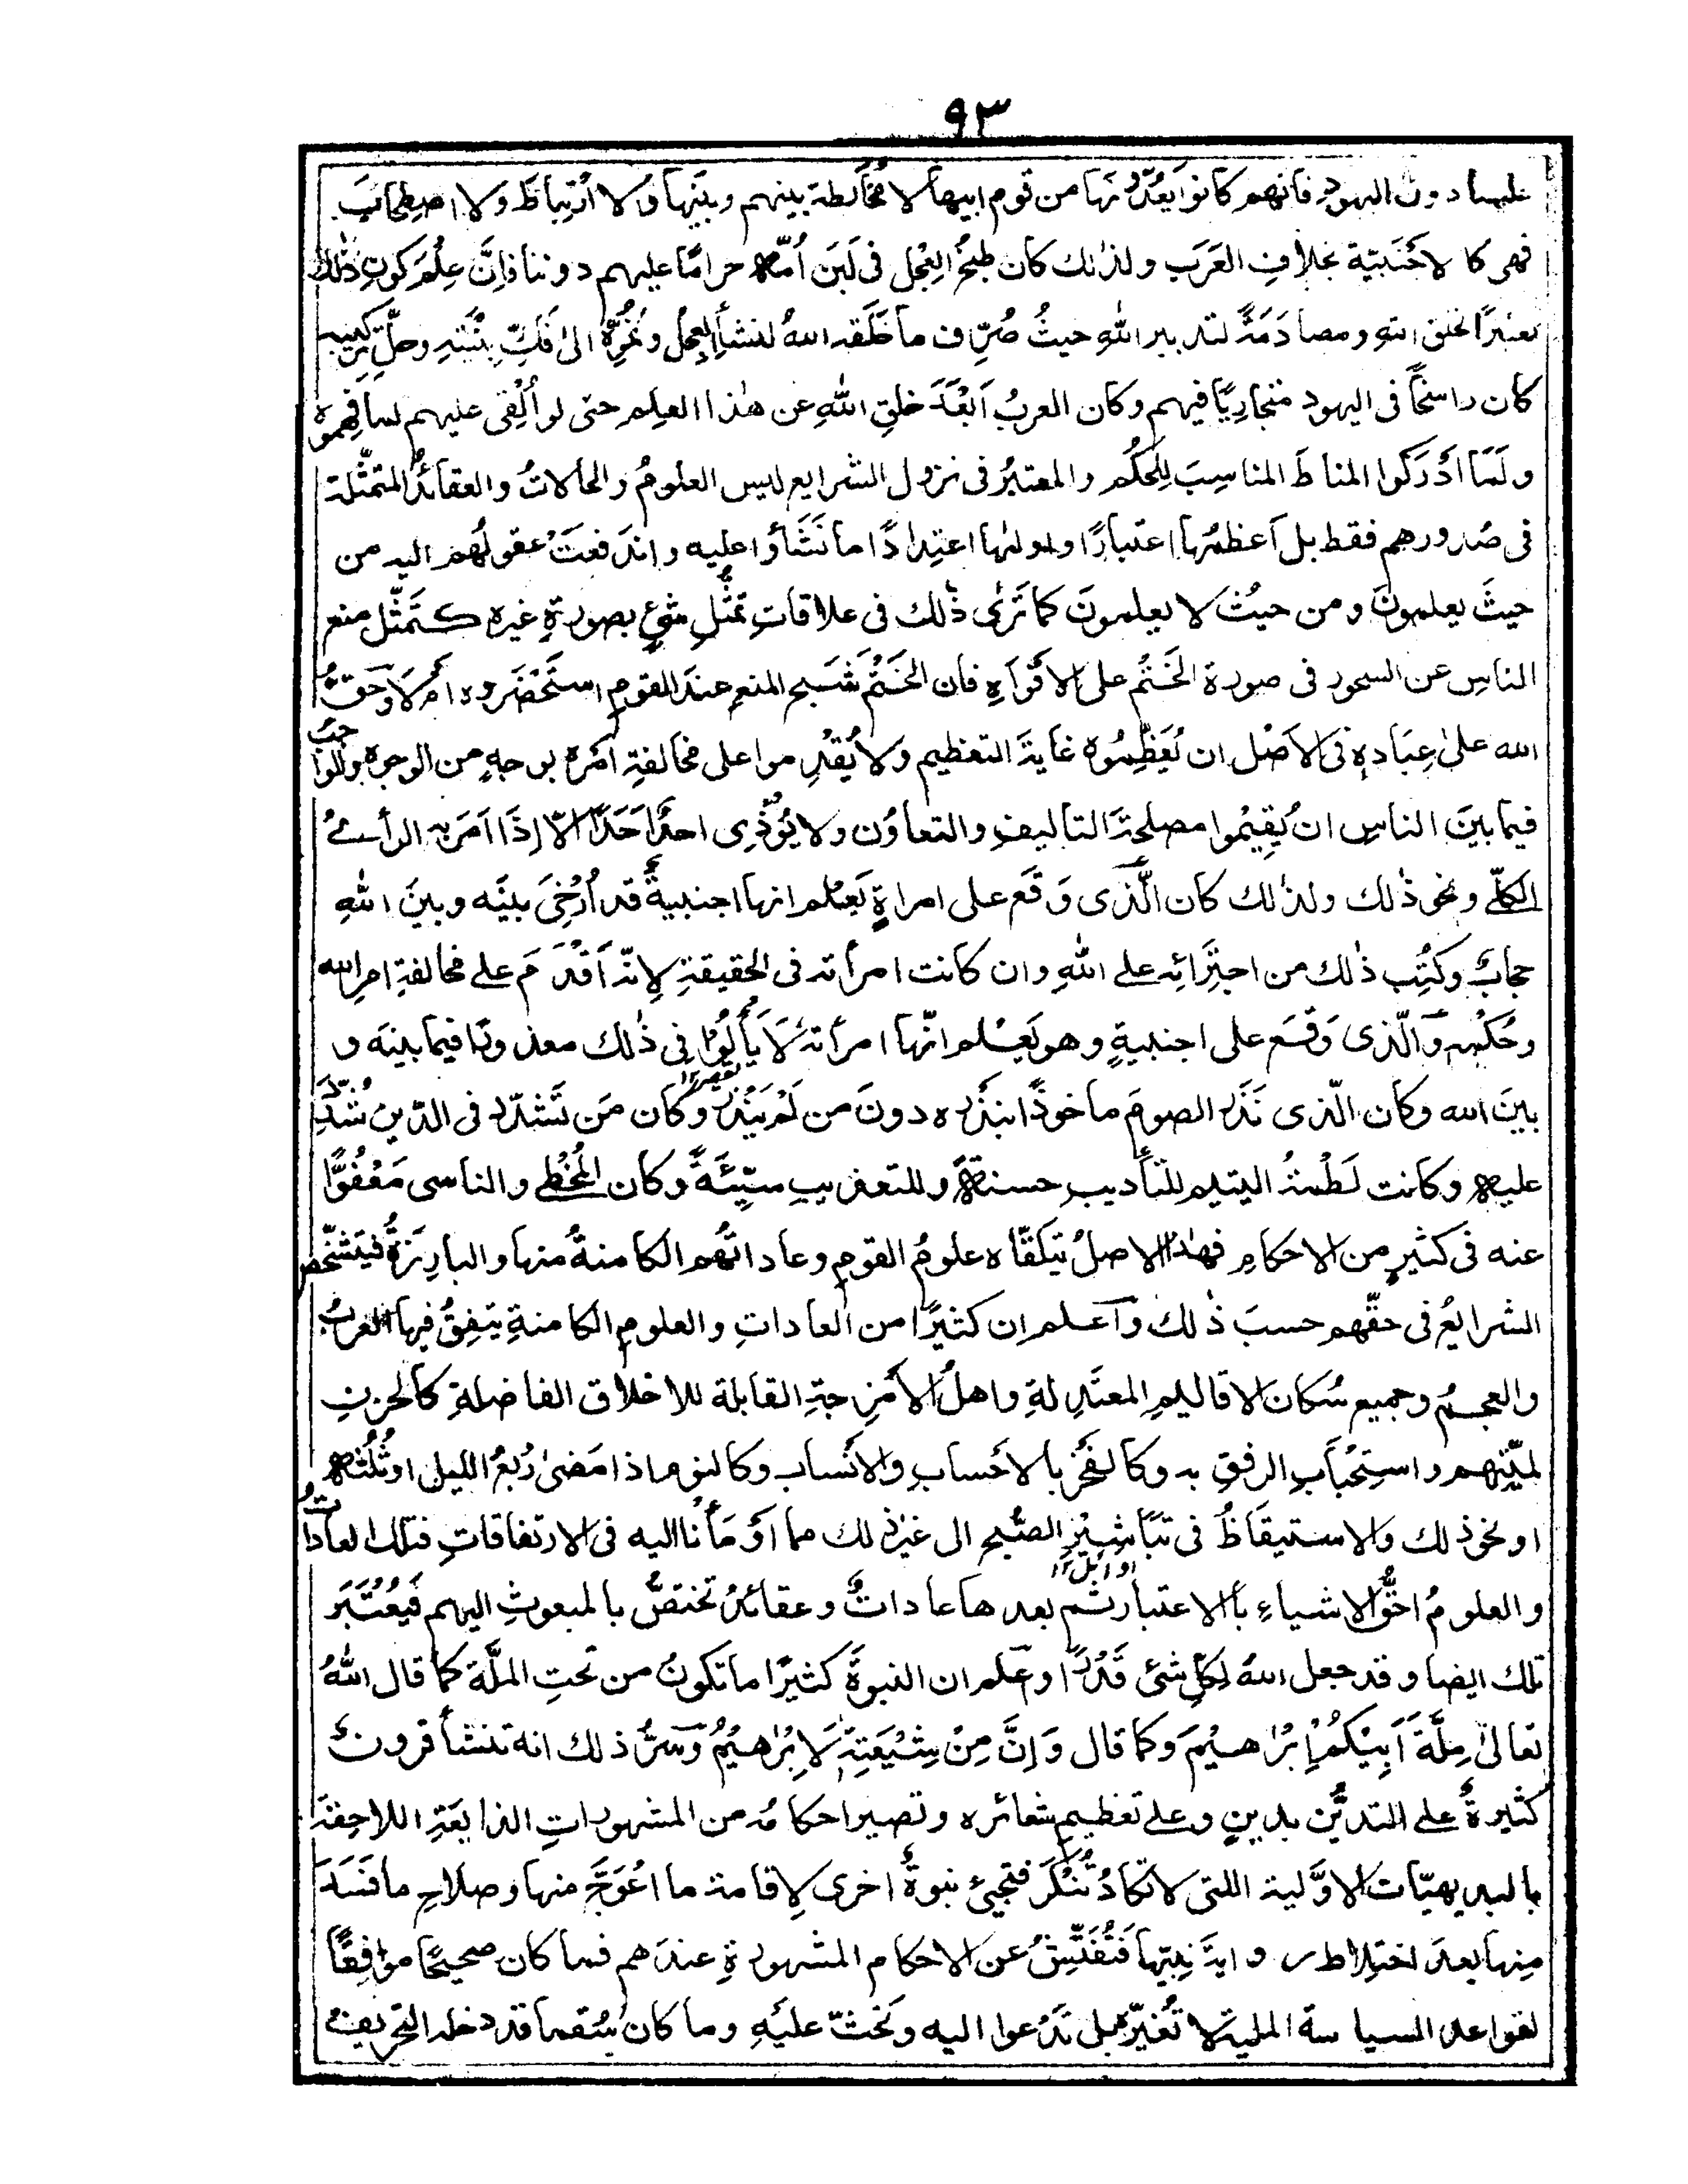 ٩٣
علينا دون اليهود فانهم كانوا يَعُدُّونها من قوم ابيها لا مُخَالطة بينهم وبَيْنها ولا ارْتِباطَ ولا اصطِحَابَ
فهى كالاَجْنَبيّة بخلافِ العَرَب ولذٰلك كان طبخُ العِجْل فى لَبَن اُمّه حرامًا عليهم دوننا فاِنَّ عِلْمَ كونِ ذٰلك
تغييرًا لخلق الله ومصادَمَةً لتدبير اللهِ حيثُ صُرِّف ما خَلَقه اللهُ لنشأِ العِجْل ونُمُوِّهٖ الىٰ فَكِّ بِنْيَتِهٖ وحلِّ تركيبِهٖ
كان راسخًا فى اليهود متجاريًا فيهم وكان العربُ اَبْعَدَ خلقِ اللهِ عن هٰذا العلِم حتى لو اُلْقِى عليهم لما فَهِموه
ولَمَا اَدْرَكوا المناطَ المناسِبَ لِلْحكُم والمعتبرُ فى نزول الشرايع ليس العلومُ والحالاتُ والعقائدُ المتمثّلة
فى صُدورهم فقط بل اَعظمُها اعتبارًا واولٰىها اعتِدادًا ما نَشَأوا عليه واندفعَتْ عقولُهم اليه من
حيثُ يعلمونَ ومن حيثُ لا يعلمونَ كما تَرٰى ذٰلك فى علاقاتِ تمثُّلِ شئٍ بصورةِ غيره كتمَثّل منع
الناسِ عن السحور فى صورة الخَتْم على الاَفْوَاهِ فان الخَتْمَ شَبَحُ المنعِ عندَ القومِ استَحْضَروه اَمْ لَا وحَقُّ
الله علىٰ عِبَادهٖ فى الاَصْل ان يُعَظِّمُوه غايةَ التعظيم ولا يُقْدِموا على مخالفةِ امْره بوجهٍ من الوجوه والواجبُ
فيما بينَ الناسِ ان يُقِيْموا مصلحةَ التأليفِ والتعاوُن ولا يُؤْذِى احدٌ اَحَدًا الّا اِذَا اَمَرَ به الرأىُ
الكلّى ونحو ذٰلك ولذٰلك كان الّذى وَقَع على امراةٍ يَعْلم انها اجنبيةٌ قد اُرْخِىَ بينَه وبينَ اللهِ
حجابٌ وكُتِب ذٰلك من اجتِرَائِه على اللهِ وان كانت امرأته فى الحقيقةِ لِانّه اَقْدَمَ على مخالفةِ امرِ الله
وحُكْمِه والّذى وَقَعَ على اجنبيةٍ وهو يَعْلم انّها امرأته لَا يَأْلُوْا فى ذٰلك معذورًا فيما بينَه و
بينَ الله وكان الّذى نَذَر الصومَ ماخوذًا بنذره دونَ من لَمْ يَنْذُر وكان مَن تَشَدّد فى الدّين شُدِّد
عليه وكانت لَطْمَةُ اليتيم للتأديبِ حسنةً وللتعذيبِ سيّئةً وكان المُخْطِى والناسى مَعْفُوًّا
عنه فى كثيرٍ من الاحكامِ فهٰذا الاصلُ يتَلَقّاه علومُ القومِ وعاداتُهم الكامنةُ منها والبارِزةُ فيَتشخّص
الشرايعُ فى حقّهم حسبَ ذٰلك واَعلم ان كثيرًا من العاداتِ والعلومِ الكامنةِ يتفِقُ فيها العربُ
والعجمُ وجميع سُكان الاقاليمِ المعتدِلةِ واهلُ الاَمْزِجةِ القابلة للاخلاق الفاضلةِ كالحزنِ
لميّتهم واستِحْبَابِ الرفقِ به وكالفَخْر بالاَحساب والاَنْساب وكالنوم اذا مَضىٰ رُبعُ الليل او ثُلُثه
او نحو ذٰلك والاستيقاظُ فى تبَاشِيْرِ الصُبح الى غير ذٰلك مما اَوْمَأْنا اليه فى الارتفاقاتِ فتلك العاداتُ
والعلومُ احقُّ الاشياءِ بالاعتبار ثم بعدها عاداتٌ وعقائدُ تختصُّ بالمبعوثِ اليهم فيُعْتَبَر
تلك ايضا وقد جعل اللهُ لِكلِّ شئ قَدْرًا واعلم ان النبوةَ كثيرًا ما تكونُ من تحتِ الملّة كما قال اللهُ
تعالىٰ مِلَّةَ اَبِيْكُمْ اِبْرٰاهِيْمَ وكما قال وَاِنَّ مِنْ شِيْعَتِهٖ لَاِبْرٰهِيْمُ وسرُّ ذلك انه تنشأ قرونٌ
كثيرةٌ على التديُّن بدينٍ وعلى تعظيمِ شعائره وتصير احكامُه من المشهوراتِ الذايعَةِ اللاحِقة
بالبديهيّات الاوَّلية اللتى لا تكادُ تُنْكَر فتجيئ نبوةٌ اخرى لاِقامة ما اعْوَجَّ منها وصلاحِ ما فَسَدَ
مِنها بعدَ اختِلاط رواية نَبِيّها فتُفَتِّشُ عن الاحكام المشهورةِ عندَهم فما كان صحيحًا موافِقًا
لقواعد السياسة الملية لا تُغَيِّره بل تَدْعوا اليه وتَحُثّ عليَهِ وما كان سقيما قد دخله التحريفُ